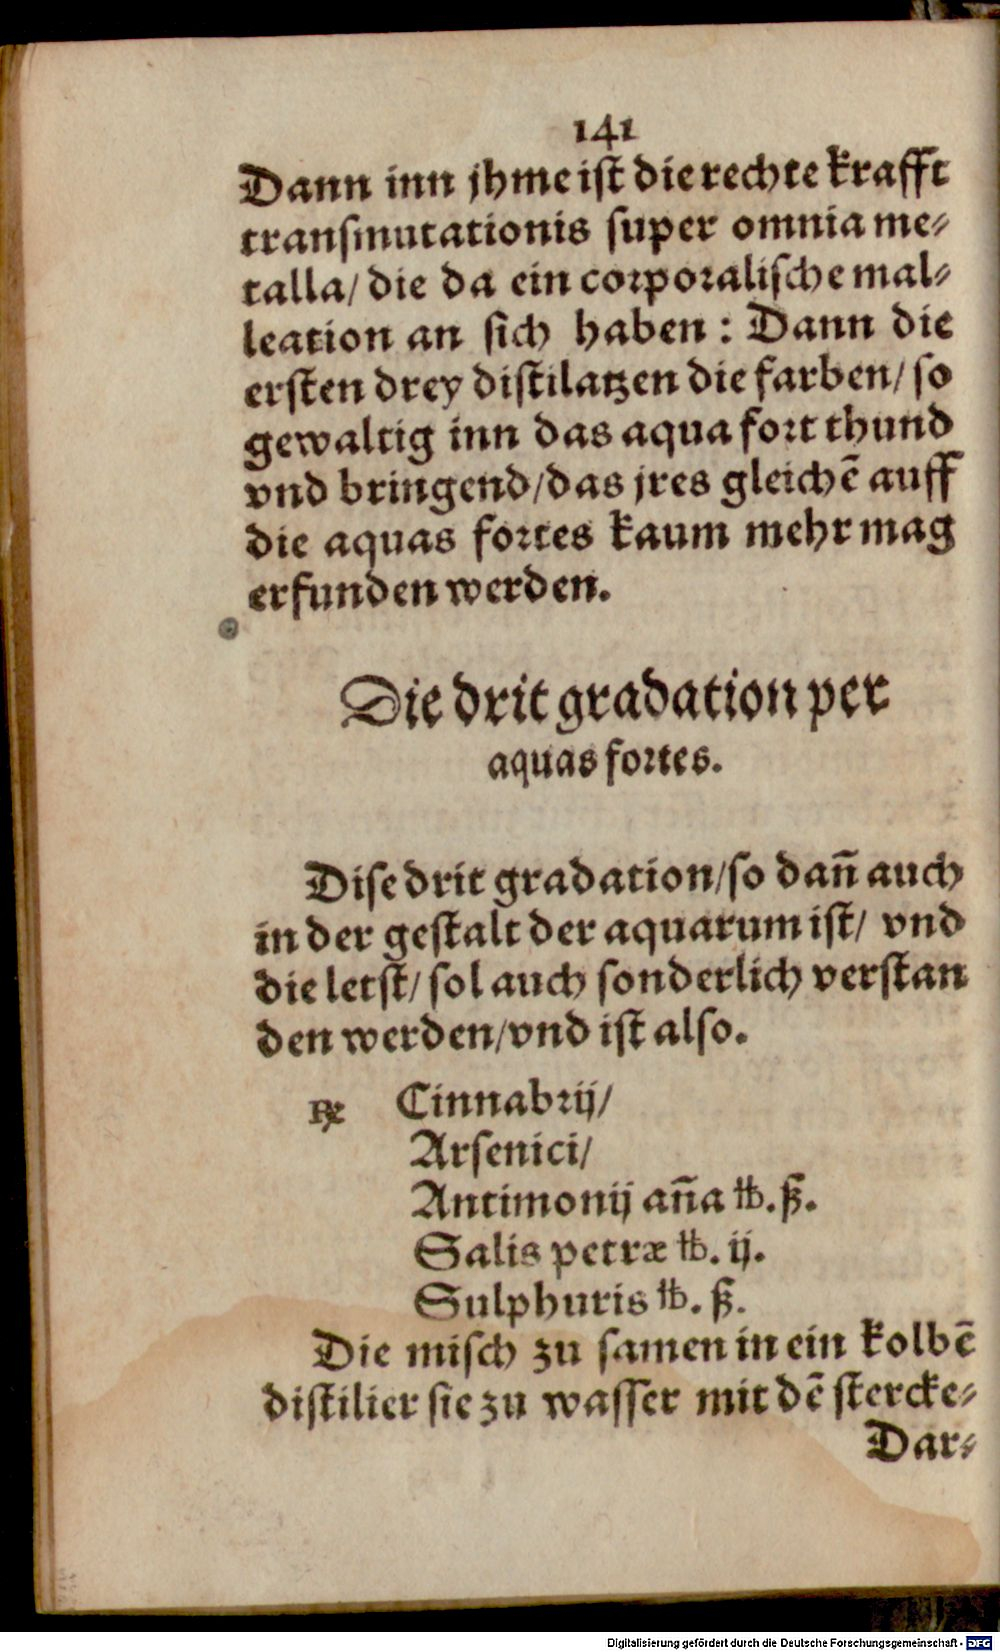 141
Dann inn jhme ist die rechte krafft
transmutationis super omnia me⸗
talla/ die da ein corporalische mal⸗
leation an sich haben : Dann die
ersten drey distilatzen die farben/ so
gewaltig inn das aqua fort thund
vnd bringend/das jres gleichē auff
die aquas fortes kaum mehr mag
erfunden werden.
Die drit gradation per
aquas fortes.
Dise drit gradation/so dañ auch
in der gestalt der aquarum ist/ vnd
die letst/ sol auch sonderlich verstan
den werden/vnd ist also.
℞ Cinnabrij/
Arsenici/
Antimonij aña ℔.ß.
Salis petræ ℔. ij.
Sulphuris ℔. ß.
Die misch zu samen in ein kolbē
distilier sie zu wasser mit dē stercke⸗
Dar⸗
Digitalisierung gefördert durch die Deutsche Forschungsgemeinschaft - DFG